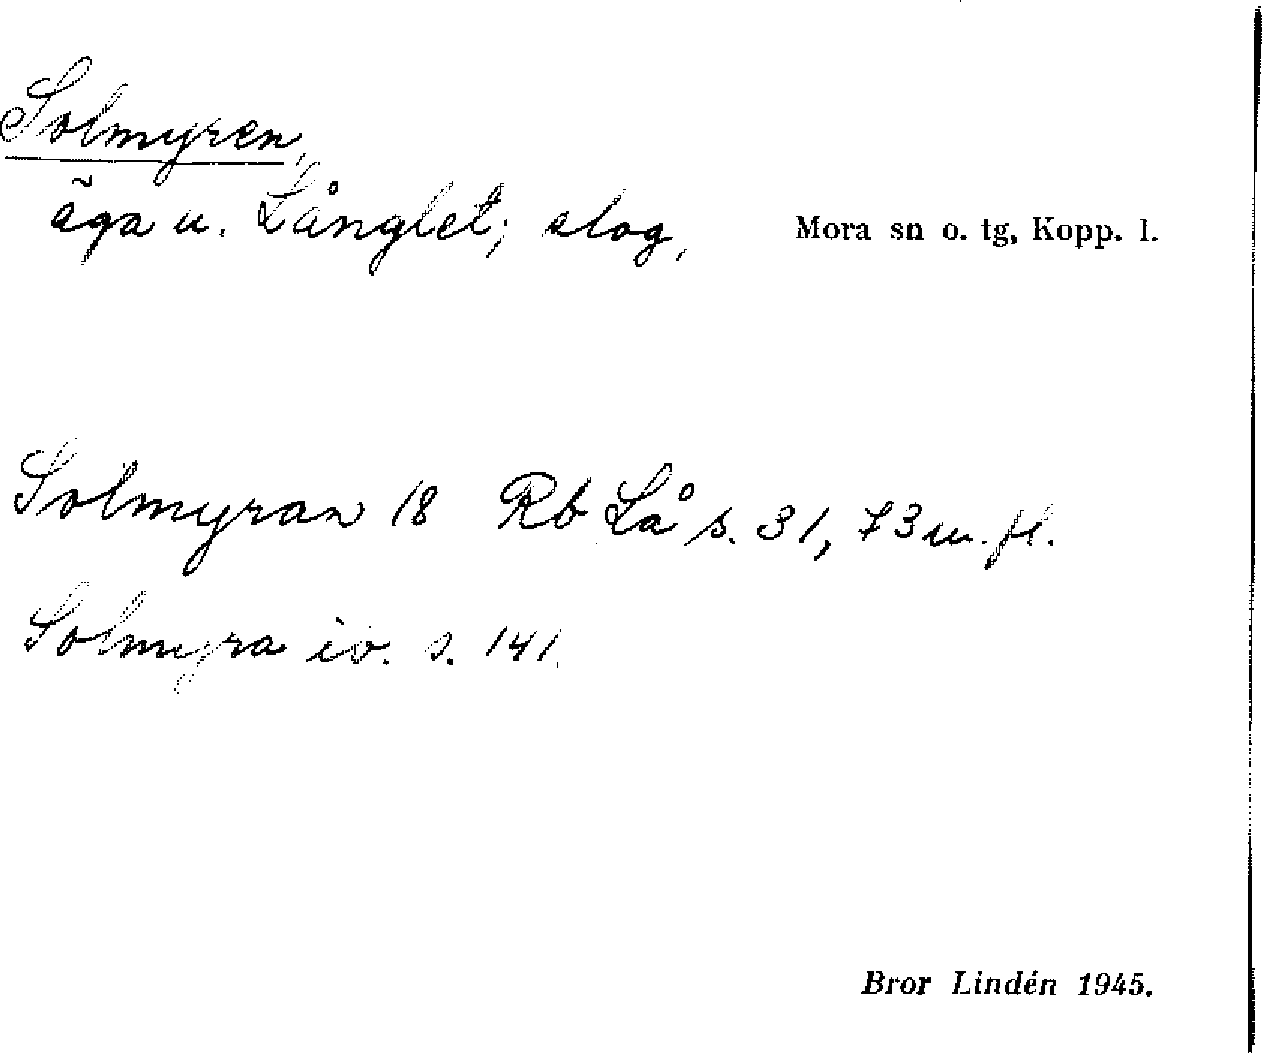 Solmyren,
äga u. Långlet; slog, Mora sn o. tg, Kopp. l.
Solmyran 18 Rb Lå s. 31, 73 m. fl.
Solmyra io. s. 141.
Bror Lindén 1945.